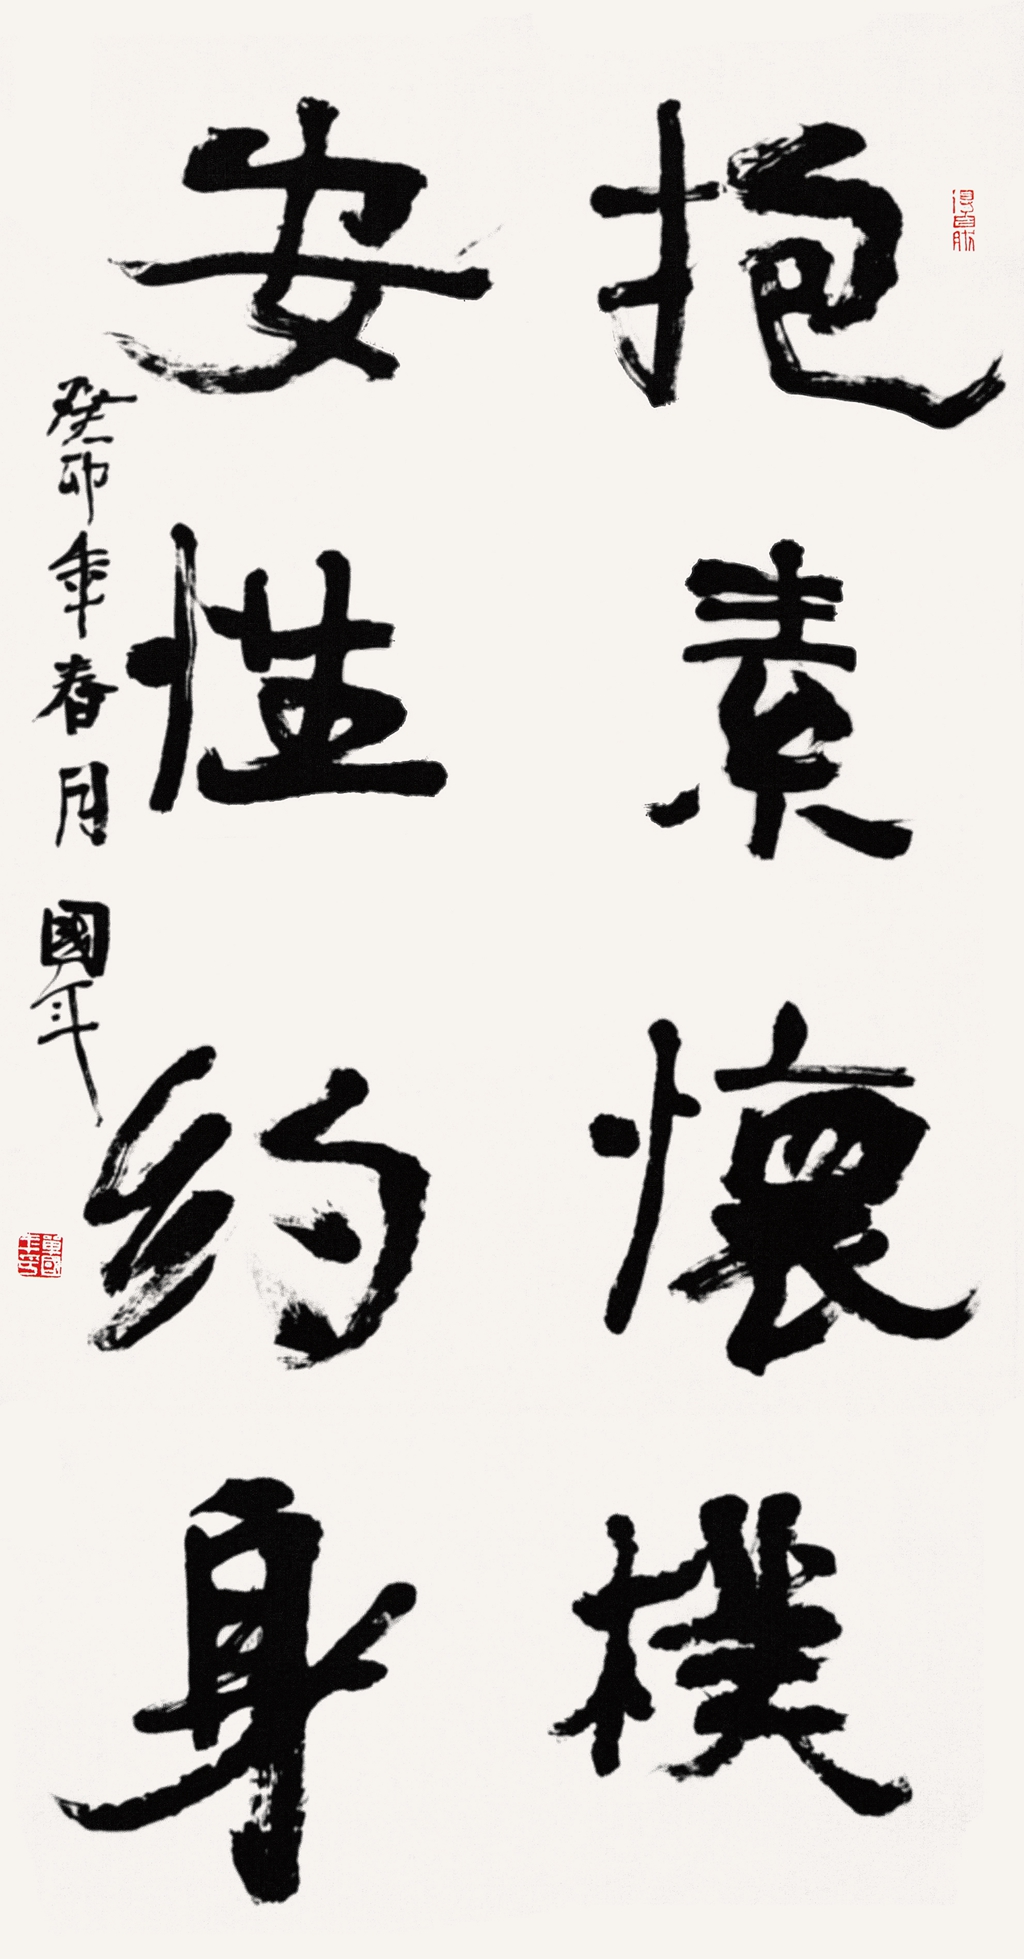 抱素懷樸
安性約身
癸卯年春月 國年